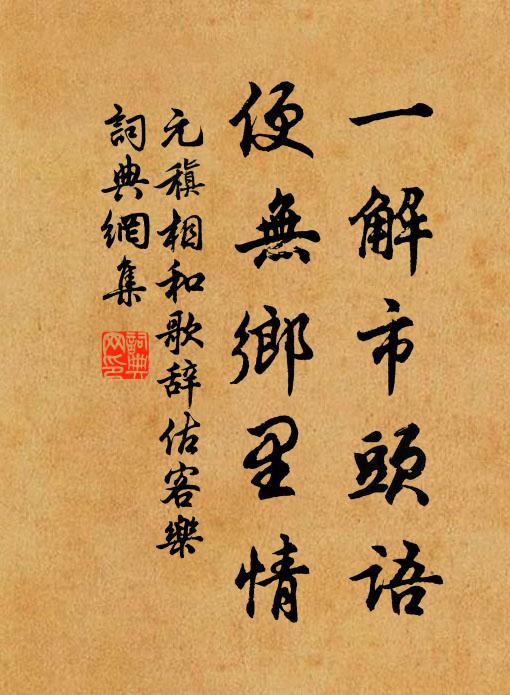 一解市頭語
便無鄉里情
元稹相和歌辞估客樂
詞典網集
詞典
网印